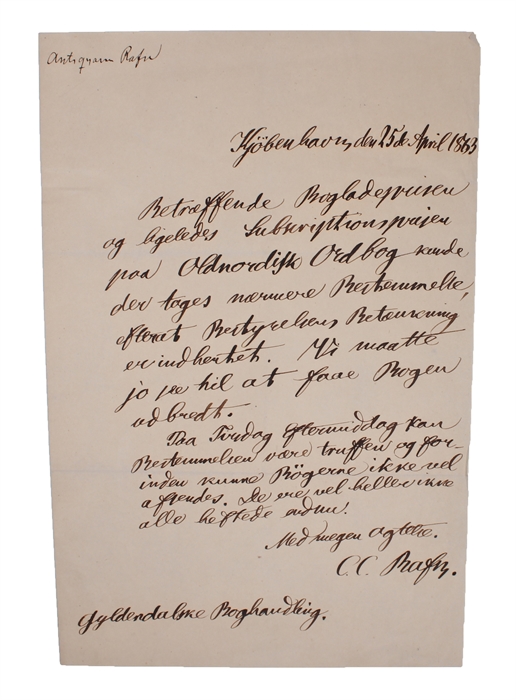 Antiquam Rafn
Kjöbenhavn, den 25de April 1863
Betræffende Bogladeprisen
og ligeledes Subscriptionsprisen
paa Oldnordisk Ordbog kunde
der tages nærmere Bestemmelse,
efterat Bestyrelsens Betænkning
er indhentet. Vi maatte
jo see til at faae Bogen
udbredt.
Paa Tirsdag Eftermiddag kan
Bestemmelsen være truffen og for-
inden kunne Bögerne ikke vel
afsendes. De ere vel heller ikke
alle heftede endnu.
Med megen Agtelse.
C. C. Rafn.
Gyldendalske Boghandling.